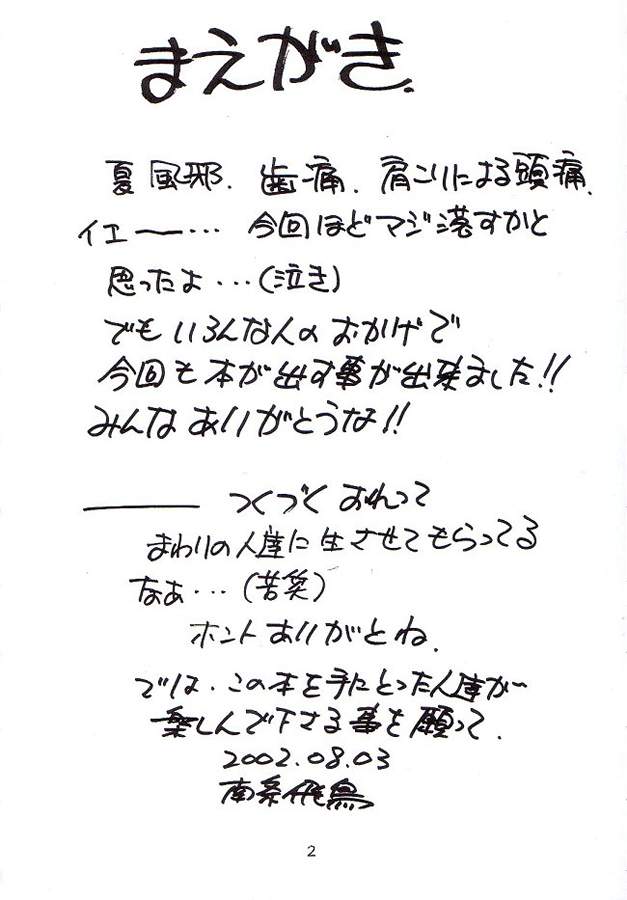 まえがき.
夏風邪.歯痛.肩こりによる頭痛.
イエー――…今回ほどマジ落すかと
思ったよ…(泣き)
でもいろんな人のおかげで
今回も本が出す事が出来ました!!
みんなありがとうな!!
―――つくづくおれって
まわりの人達に生させてもらってる
なぁ…(苦笑)
ホントありがとね.
では.この本を手にとった人達が
楽しんで下さる事を願って.
2002.08.03
南条飛鳥
2